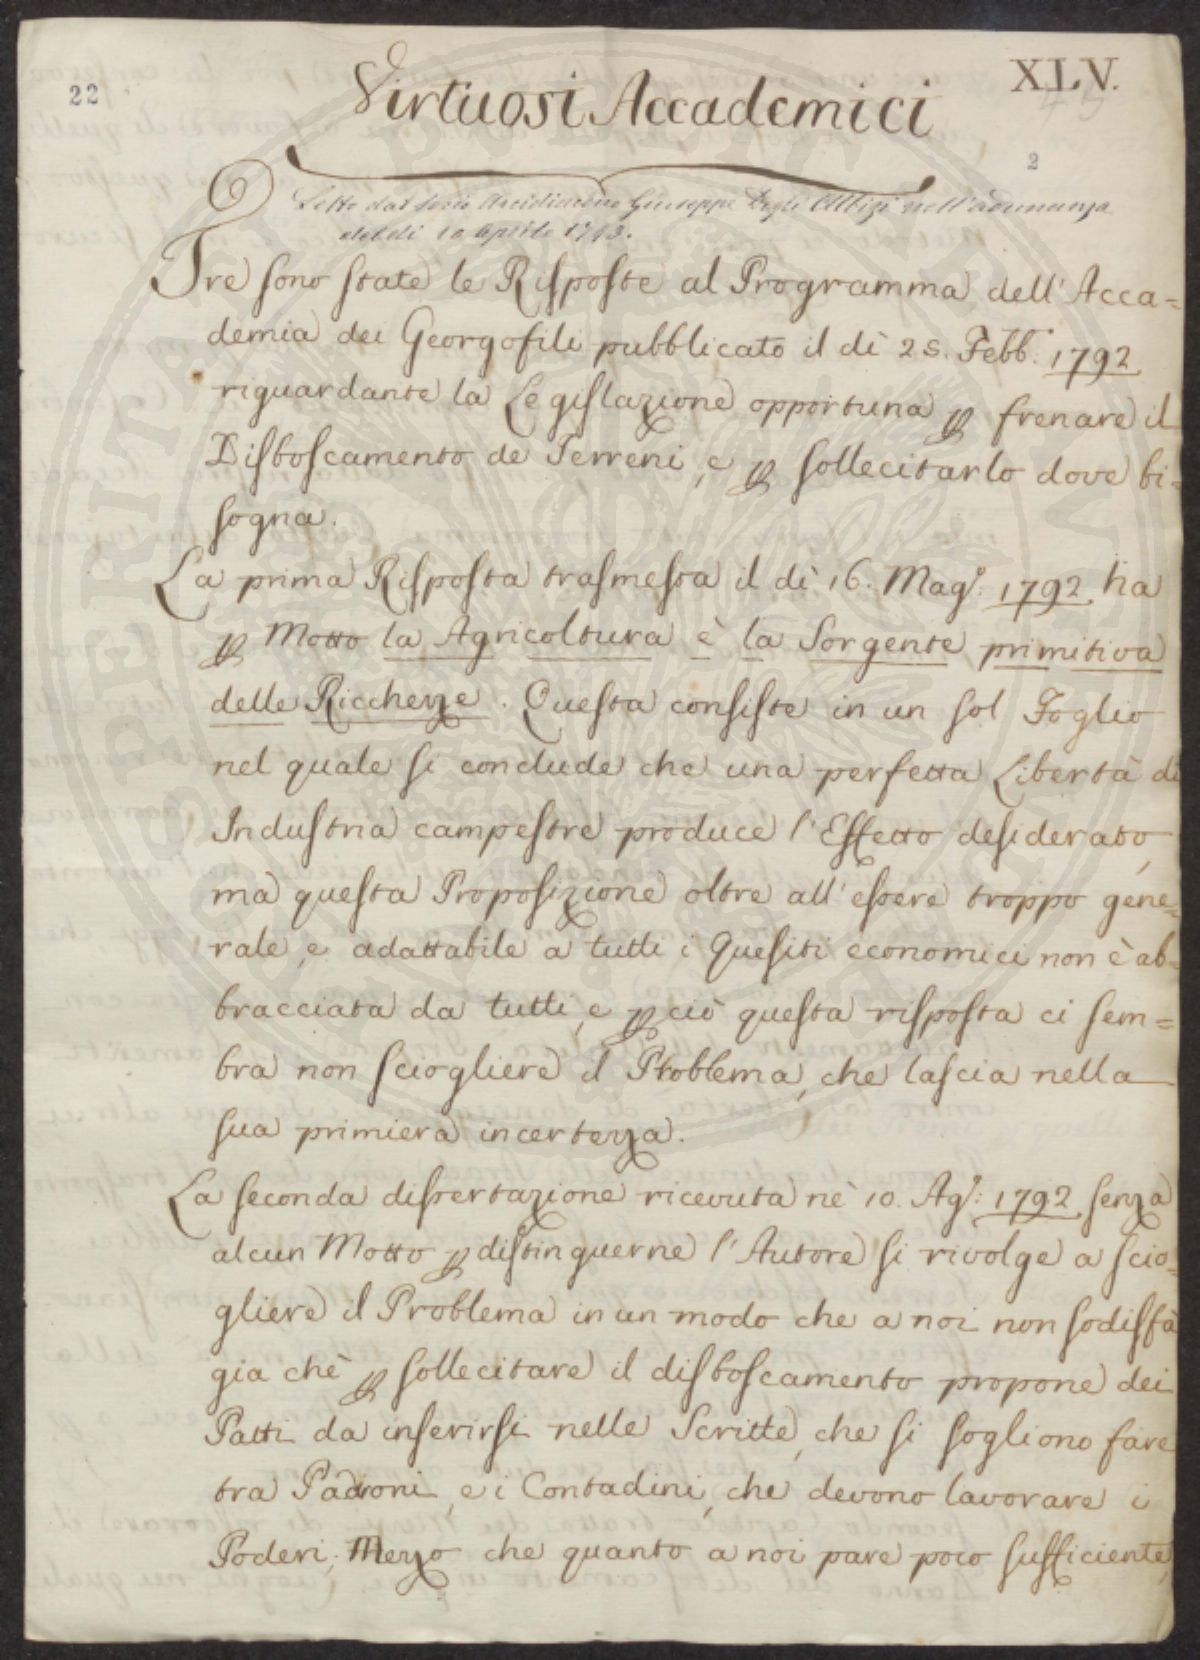 XLV.
22
Virtuosi Accademici
2
Letto dal Socio Arcidiacono Giuseppe Degli Albizi nell'adunanza
del dì 10 aprile 1793.
Tre sono state le Risposte al Programma dell'Acca=
demia dei Georgofili pubblicato il dì 25. Febb. 1792
riguardante la Legislazione opportuna ꝑ frenare il
Disboscamento de Terreni, e ꝑ sollecitarlo dove bi=
sogna.
La prima Risposta trasmessa il dì 16. Mag.º 1792 ha
ꝑ Motto la Agricoltura è la Sorgente primitiva
delle Ricchezze. Questa consiste in un sol Foglio
nel quale si conclude che una perfetta Libertà di
Industria campestre produce l'Effetto desiderato,
ma questa Proposizione oltre all'essere troppo gene=
rale, e adattabile a tutti i Quesiti economici non è ab=
bracciata da tutti, e ꝑ ciò questa risposta ci sem=
bra non sciogliere il Problema, che lascia nella
sua primiera incertezza.
La seconda dissertazione ricevuta nè 10. Ag.º: 1792 senza
alcun Motto ꝑ distinguerne l'Autore si rivolge a scio=
gliere il Problema in un modo che a noi non sodisfà
gia chè ꝑ sollecitare il disboscamento propone dei
Patti da inserirsi nelle Scritte, che si sogliono fare
tra Padroni, e i Contadini, che devono lavorare i
Poderi; Mezzo che quanto a noi pare poco sufficiente,